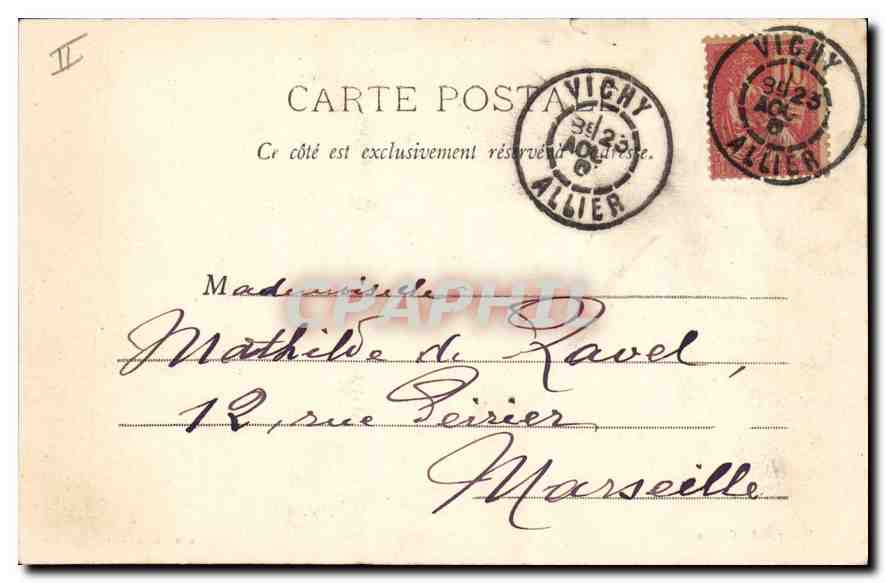 II
CARTE POSTALE
Ce côté est exclusivement réservé à l'adresse.
VICHY
8E 23
AOU
ALLIER
VICHY
8E 23
AOU
ALLIER
10
CPAPHIL
Mademoiselle
Mathilde de Ravel,
12, rue Perrier
Marseille